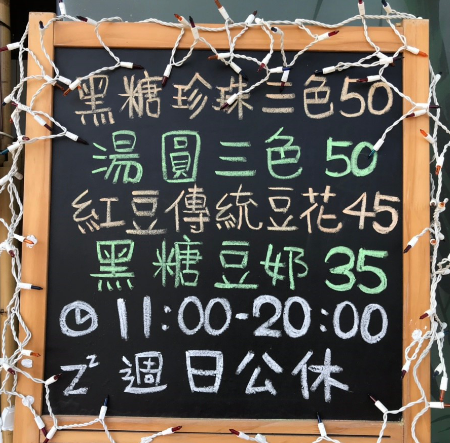 黑糖珍珠三色50
湯圓三色 50
紅豆傳統豆花45
黑糖豆奶35
11:00-20:00
zz 週日公休